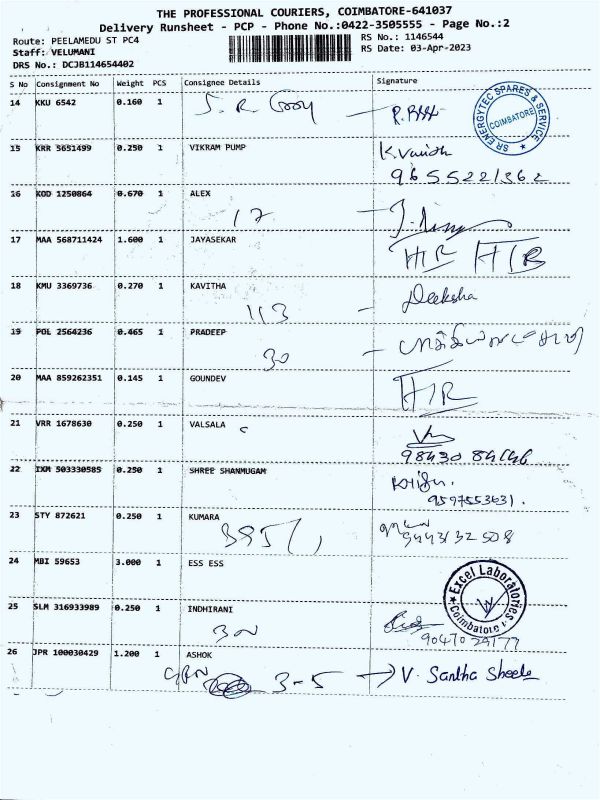 THE PROFESSIONAL COURIERS, COIMBATORE-641037
Delivery Runsheet - PCP - Phone No.:0422-3505555 - Page No.:2
Route: PEELAMEDU ST PC4
RS No.: 1146544
Staff: VELUMANI
RS Date: 03-Apr-2023
DRS No.: DCJB114654402
S No Consignment No Weight PCS Consignee Details Signature
14 KKU 6542 0.160 1
SR ENERGYTEC SPARES & SERVICE COIMBATORE
15 KRR 5651499 0.250 1 VIKRAM PUMP
9655221362
16 KOD 1250864 0.670 1 ALEX
17
17 MAA 568711424 1.600 1 JAYASEKAR
H/R H/R
18 KMU 3369736 0.270 1 KAVITHA
113 Deeksha
19 POL 2564236 0.465 1 PRADEEP
30
20 MAA 859262351 0.145 1 GOUNDEV
H/R
21 VRR 1678630 0.250 1 VALSALA
98430
22 IXM 503330585 0.250 1 SHREE SHANMUGAM
9597553631.
23 STY 872621 0.250 1 KUMARA
9443132508
24 MBI 59653 3.000 1 ESS ESS
Excel Laboratories Coimbatore
25 SLM 316933989 0.250 1 INDHIRANI
26 JPR 100030429 1.200 1 ASHOK
3-5 V. Santha Sheela